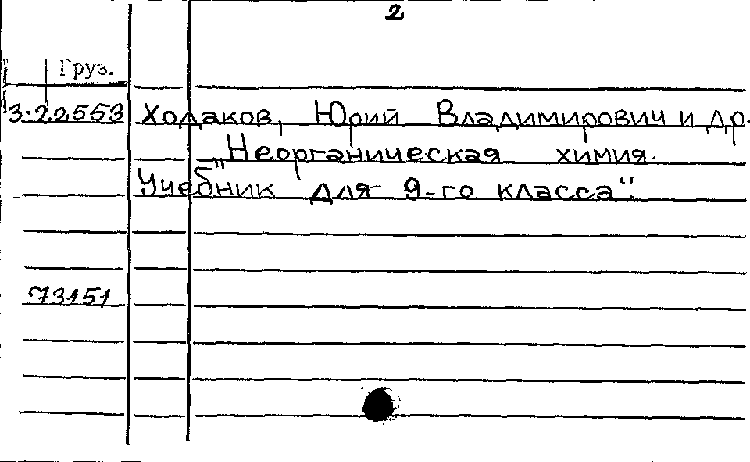 2
Груз.
3.22553 Ходаков, Юрий Владимирович и др.
„Неорганическая химия.
Учебник для 9-го класса".
73151